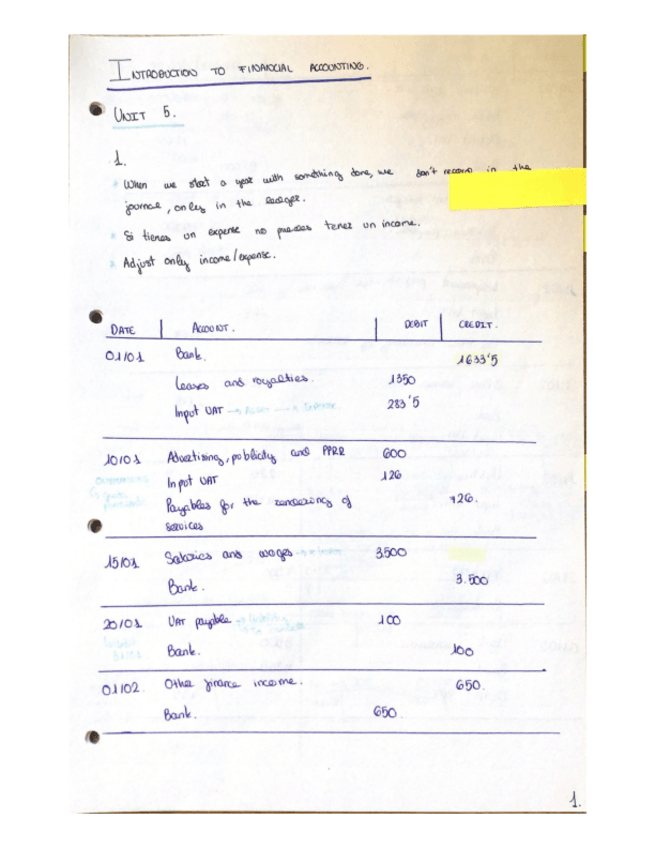 INTRODUCTION TO FINANCIAL ACCOUNTING.
UNIT 5.
1.
When we start a year with something done, we don't record in the
journal, only in the ledger.
Si tienes un expense no puedes tener un income.
Adjust only income/expense.
DATE ACCOUNT. DEBIT CREDIT.
01/01 Bank. 1633'5
Leases and royalties. 1350
Input VAT → Asset → Expense 283'5
10/01 Advertising, publicity and PPRR 600
Input VAT 126
Payables for the rendering of 726.
services
15/01 Salaries and wages 3500
Bank. 3.500
20/01 VAT payable → Liability 100
Bank. 100
01/02 Other finance income. 650.
Bank. 650.
1.